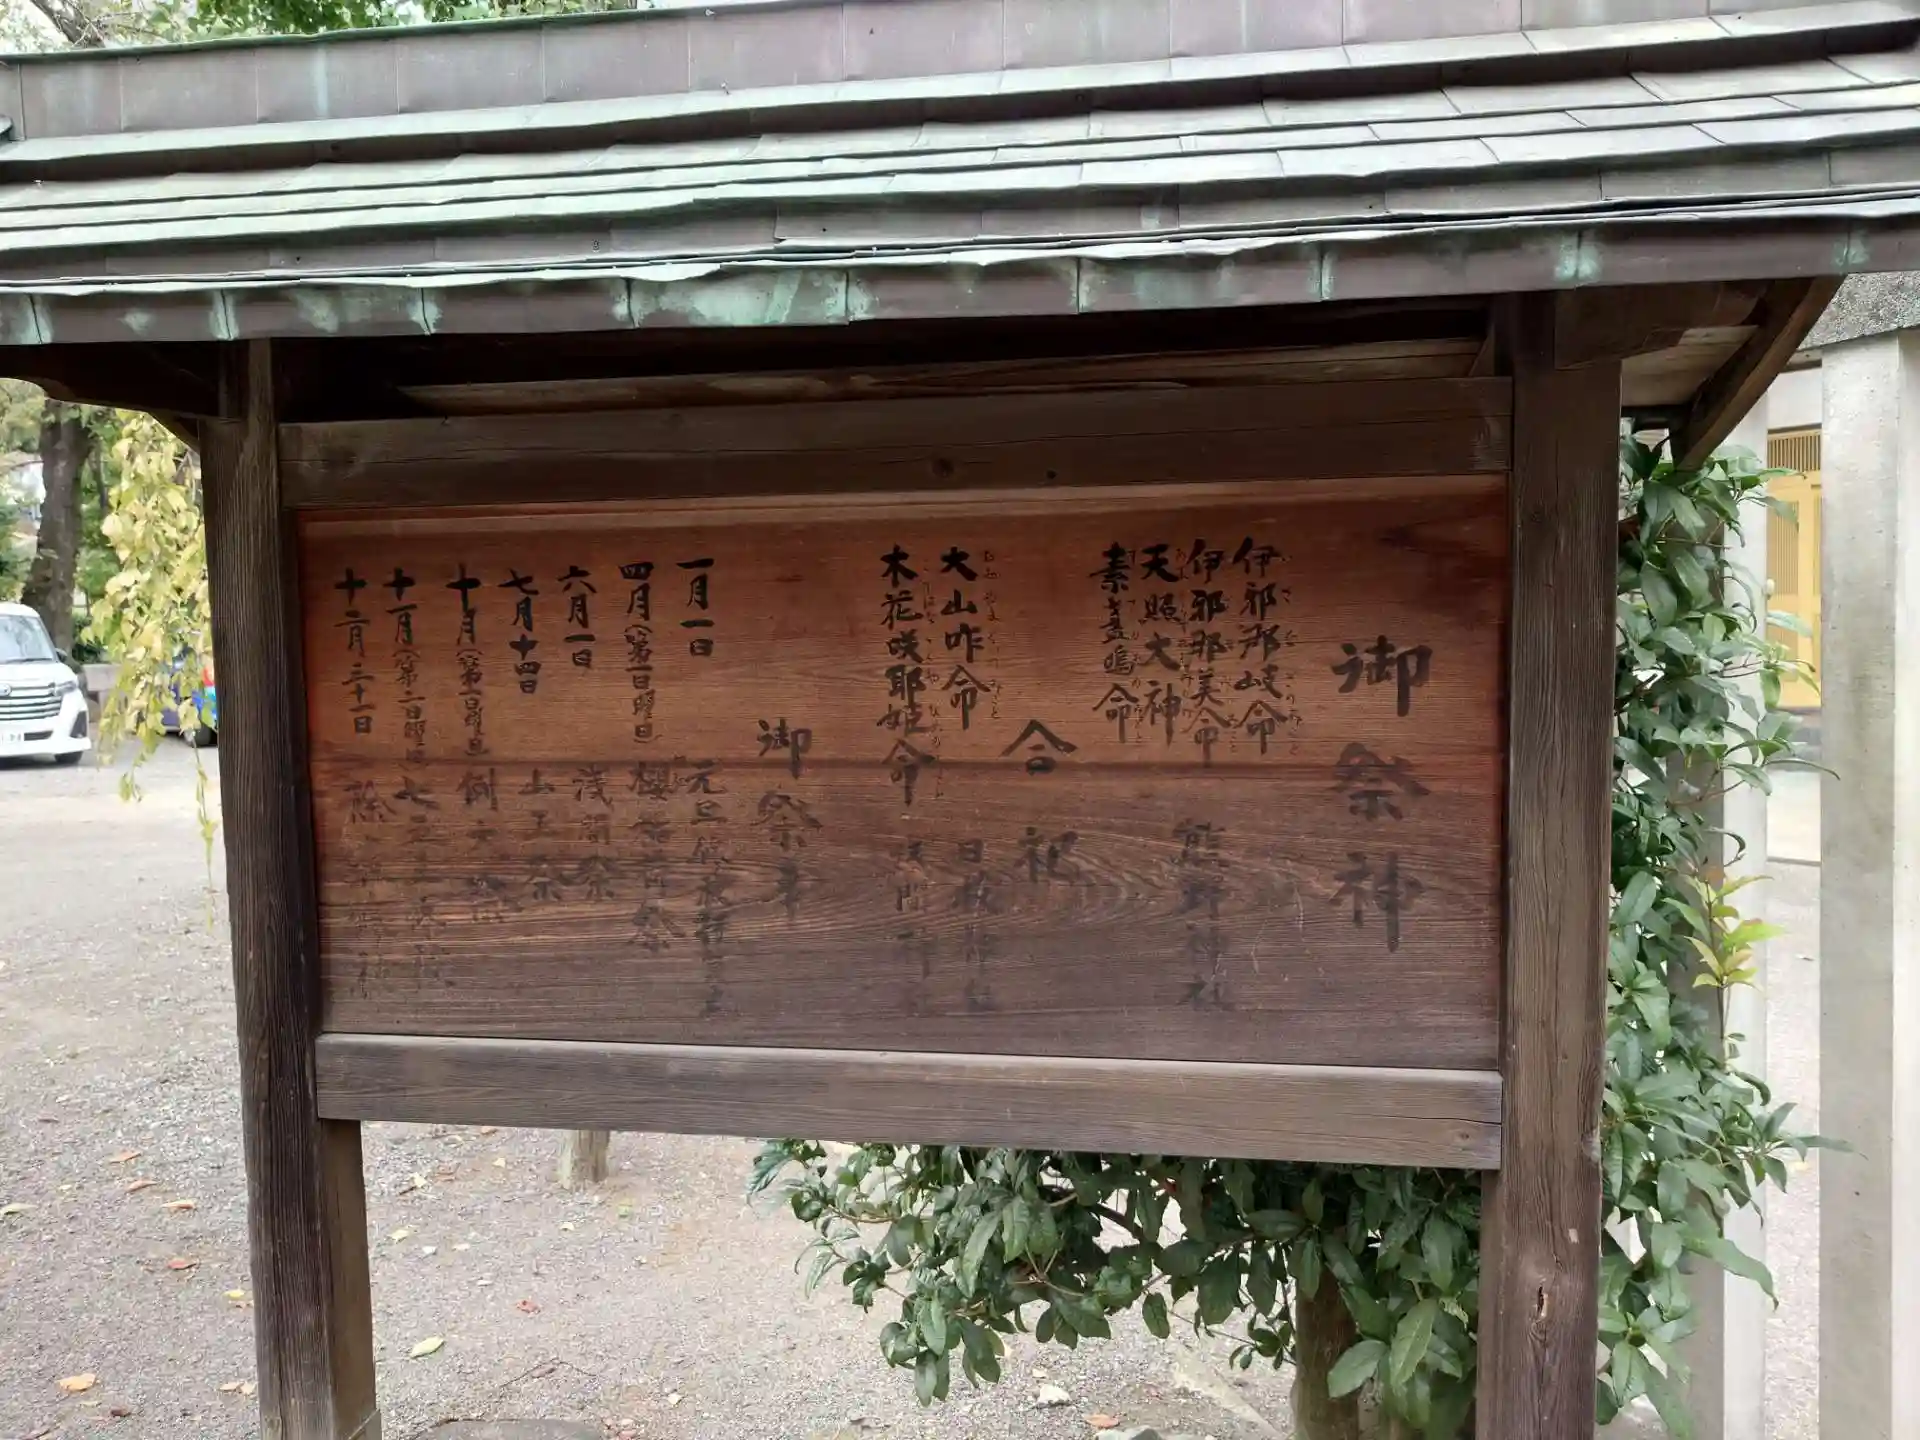 御祭神
伊邪那岐命
伊邪那美命
天照大神
素盞嗚命
熊野神社
合祀
大山咋命
日枝神社
木花咲耶姫命
浅間神社
御祭事
一月一日 元旦
四月(第一日曜日) 祭
六月一日 浅間祭
七月十四日 山王祭
十月 例大祭
十一月(第二日曜日) 七五三
十二月三十一日 除